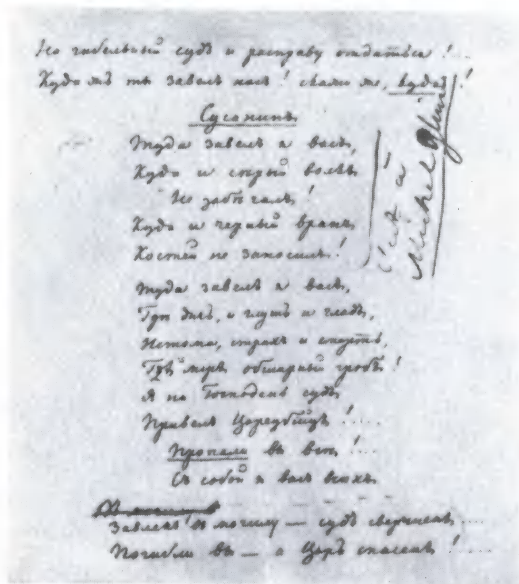 На гибельный судъ и расправу отдаться !...
Куда жъ ты завелъ насъ! скажи же, куда !
Сусанинъ
Туда завелъ я васъ,
Куда и сѣрый волкъ
Не забѣгалъ!
Куда и черный вранъ
Костей не заносилъ!
Туда завелъ я васъ,
Гдѣ дичь, и глушь и гладъ,
Истома, страхъ и смерть,
Гдѣ обширный гробъ!
Я на Господень судъ
Привелъ Цареубійцъ !....
Пропали вы всѣ !...
Съ собой я васъ всѣхъ
Завлекъ въ могилу — судъ свершенъ, ....
Погибли вы — а Царь спасенъ !...
à
Michel